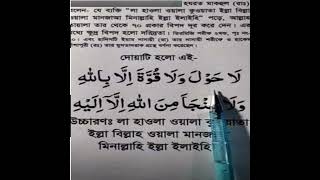 হযরত মাকহুল (রাঃ)
বলেন- যে ব্যক্তি "লা হাওলা ওয়ালা কুওয়াতা ইল্লা বিল্লা
ওয়ালা মানজাআ মিনাল্লাহি ইল্লা ইলাইহি" পড়ে, আল্লাহ
তায়ালা তার থেকে ৭০ প্রকার বিপদ দূর করে দেন। এ
মধ্যে ক্ষুদ্র বিপদ হলো দরিদ্রতা।
দোয়াটি হলো এই-
لَا حَوْلَ وَلَا قُوَّةَ اِلَّا بِاللهِ
وَلَا مَنْجَأَ مِنَ اللهِ اِلَّا اِلَيْهِ
উচ্চারণঃ লা হাওলা ওয়ালা
ইল্লা বিল্লাহ ওয়ালা মানজা
মিনাল্লাহি ইল্লা ইলাইহি